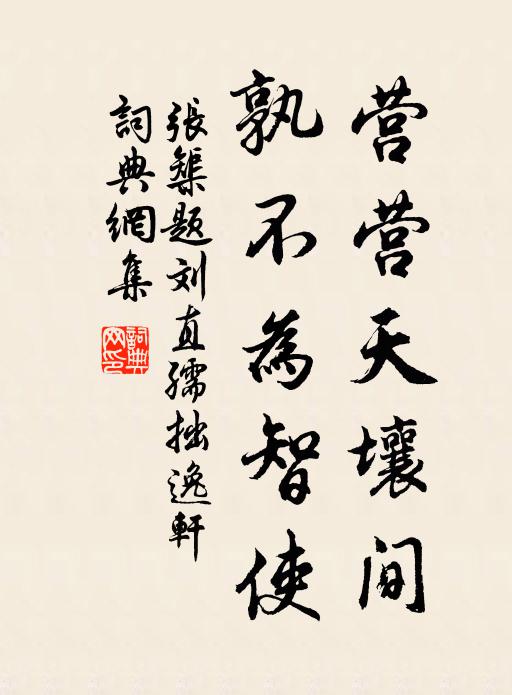 营营天壤间
孰不為智使
張榘题刘直孺拙逸軒
詞典網集
詞典網印